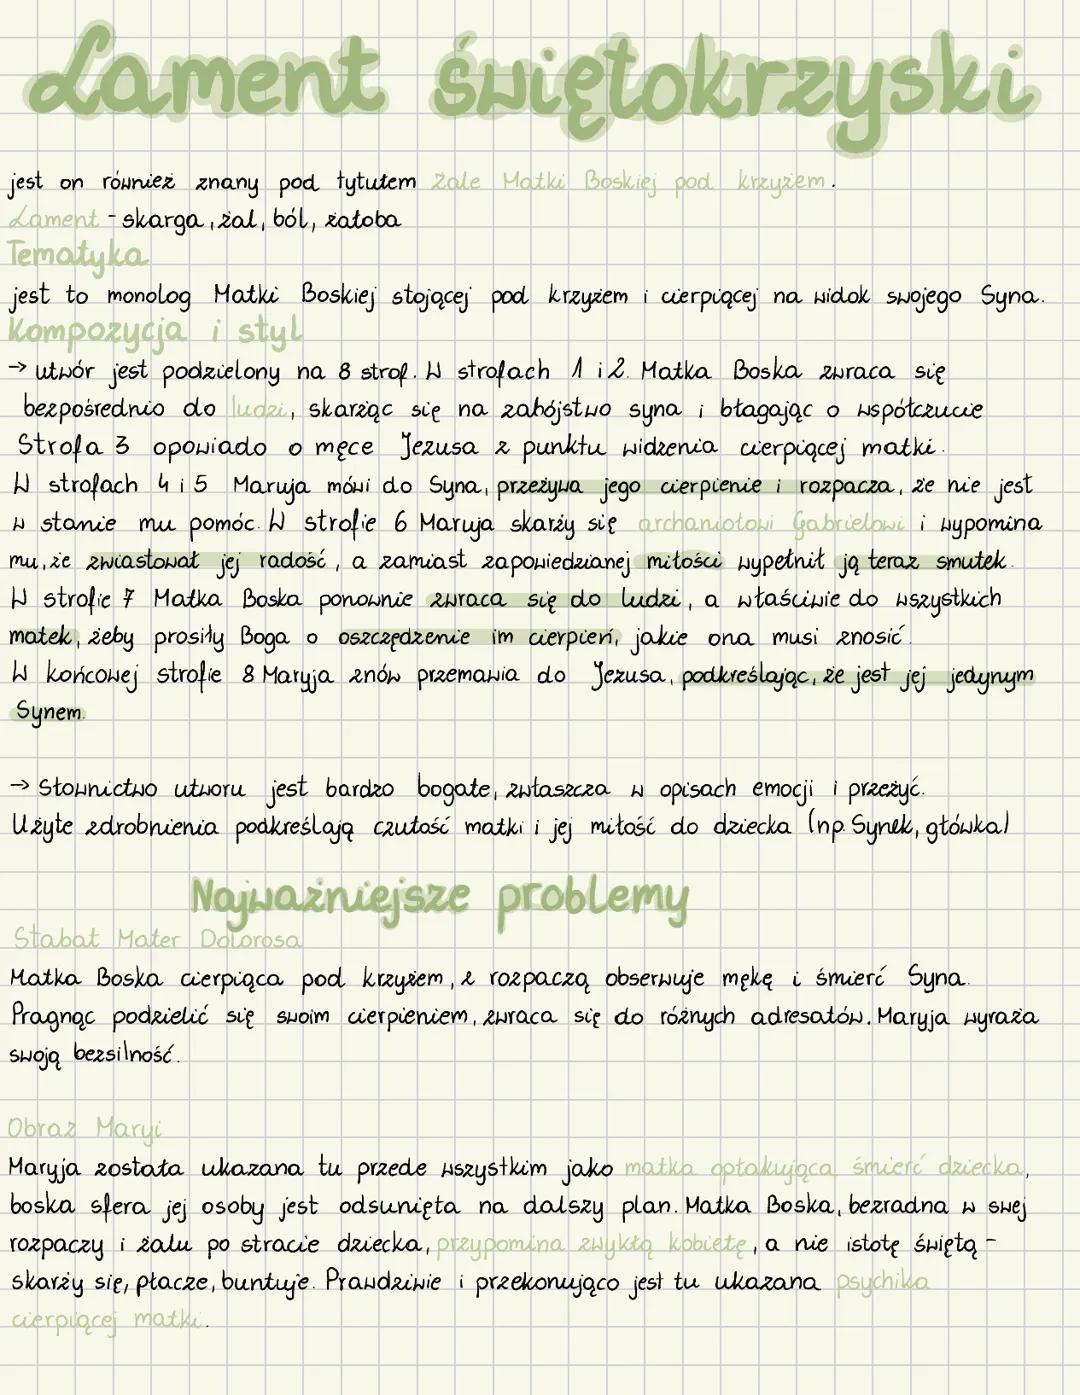 Lament świętokrzyski
jest on również znany pod tytułem Żale Matki Boskiej pod krzyżem.
Lament - skarga, żal, ból, żałoba
Tematyka
jest to monolog Matki Boskiej stojącej pod krzyżem i cierpiącej na widok swojego Syna.
Kompozycja i styl
→ utwór jest podzielony na 8 strof. W strofach 1 i 2. Matka Boska zwraca się
bezpośrednio do ludzi, skarżąc się na zabójstwo syna i błagając o współczucie
Strofa 3 opowiada o męce Jezusa z punktu widzenia cierpiącej matki.
W strofach 4 i 5 Maruja mówi do Syna, przeżywa jego cierpienie i rozpacza, że nie jest
w stanie mu pomóc. W strofie 6 Maruja skarży się archaniołowi Gabrielowi i wypomina
mu, że zwiastował jej radość, a zamiast zapowiedzianej miłości wypełnił ją teraz smutek.
W strofie 7 Matka Boska ponownie zwraca się do ludzi, a właściwie do wszystkich
matek, żeby prosiły Boga o oszczędzenie im cierpień, jakie ona musi znosić.
W końcowej strofie 8 Maryja znów przemawia do Jezusa, podkreślając, że jest jej jedynym
Synem.
→ Słownictwo utworu jest bardzo bogate, zwłaszcza w opisach emocji i przeżyć.
Użyte zdrobnienia podkreślają czułość matki i jej miłość do dziecka (np. Synek, główka)
Najważniejsze problemy
Stabat Mater Dolorosa
Matka Boska cierpiąca pod krzyżem, z rozpaczą obserwuje mękę i śmierć Syna.
Pragnąc podzielić się swoim cierpieniem, zwraca się do różnych adresatów. Maryja wyraża
swoją bezsilność.
Obraz Maryi
Maryja została ukazana tu przede wszystkim jako matka opłakująca śmierć dziecka,
boska sfera jej osoby jest odsunięta na dalszy plan. Matka Boska, bezradna w swej
rozpaczy i żalu po stracie dziecka, przypomina zwykłą kobietę, a nie istotę świętą -
skarży się, płacze, buntuje. Prawdziwie i przekonująco jest tu ukazana psychika
cierpiącej matki.